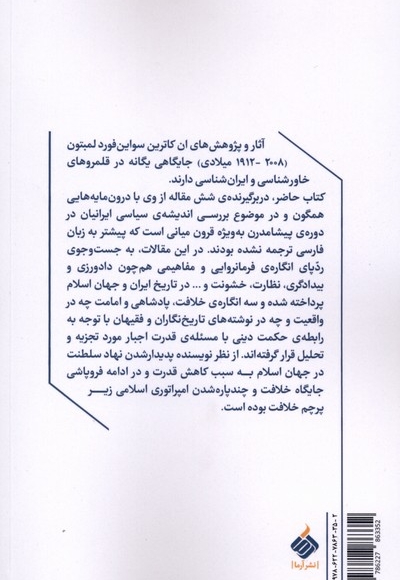 آثار و پژوهش‌های ان کاترین سواین‌فورد لمبتون
(۲۰۰۸ -۱۹۱۲ میلادی) جایگاهی یگانه در قلمروهای
خاورشناسی و ایران‌شناسی دارند.
کتاب حاضر، دربرگیرنده‌ی شش مقاله از وی با درون‌مایه‌هایی
همگون و در موضوع بررسی اندیشه‌ی سیاسی ایرانیان در
دوره‌ی پیشامدرن به‌ویژه قرون میانی است که پیشتر به زبان
فارسی ترجمه نشده بودند. در این مقالات، به جست‌وجوی
ردّپای انگاره‌ی فرمانروایی و مفاهیمی هم‌چون دادورزی و
بیدادگری، نظارت، خشونت و ... در تاریخ ایران و جهان اسلام
پرداخته شده و سه انگاره‌ی خلافت، پادشاهی و امامت چه در
واقعیت و چه در نوشته‌های تاریخ‌نگاران و فقیهان با توجه به
رابطه‌ی حکمت دینی با مسئله‌ی قدرت اجبار مورد تجزیه و
تحلیل قرار گرفته‌اند. از نظر نویسنده پدیدارشدن نهاد سلطنت
در جهان اسلام به سبب کاهش قدرت و در ادامه فروپاشی
جایگاه خلافت و چندپاره‌شدن امپراتوری اسلامی زیر
پرچم خلافت بوده است.
نشر آرما
۹۷۸-۶۲۲-۷۸۶۳-۳۵-۲
786227 863352